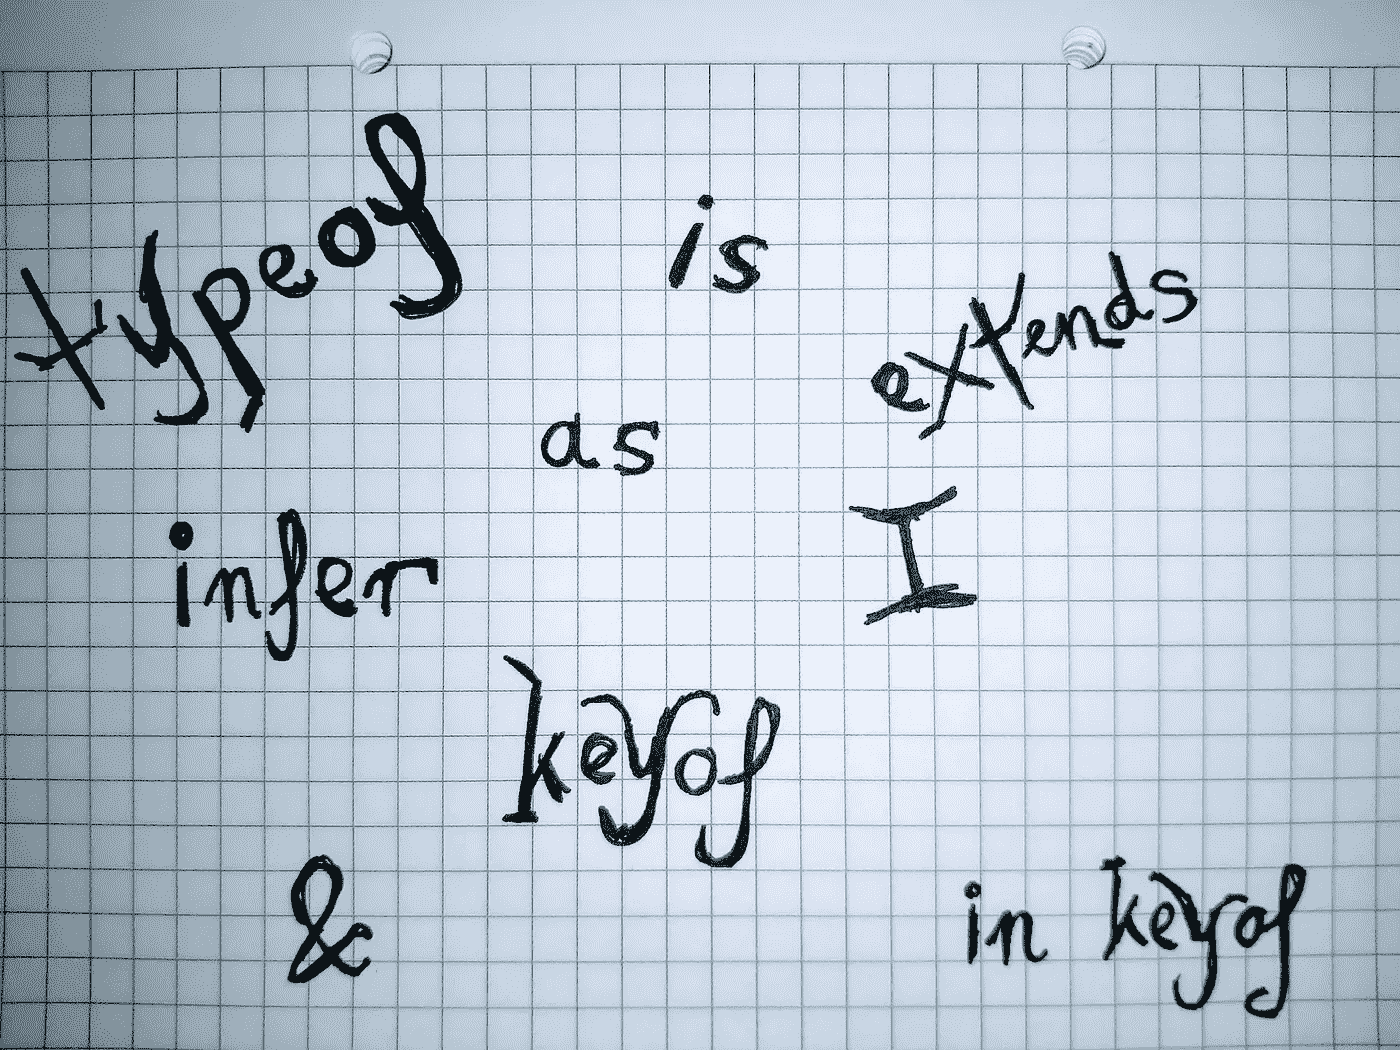 typeof
is
extends
as
infer
I
keyof
&
in keyof